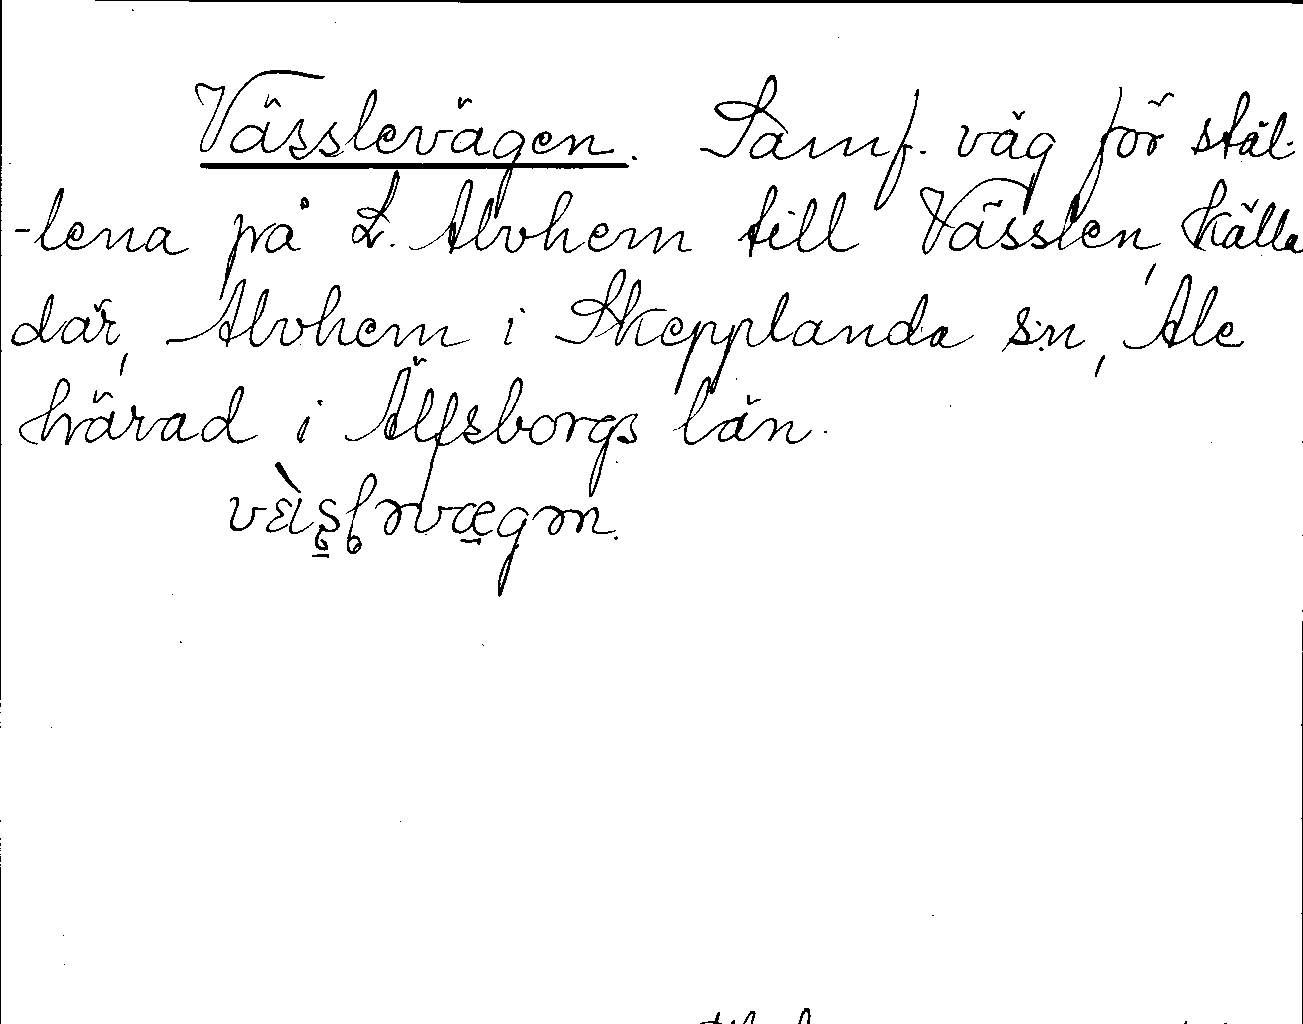 Vässlevägen. Samf. väg för stäl-
-lena på L. Alvhem till Vässlen, källa
där, Alvhem i Skepplanda sn, Ale
härad i Älfsborgs län.